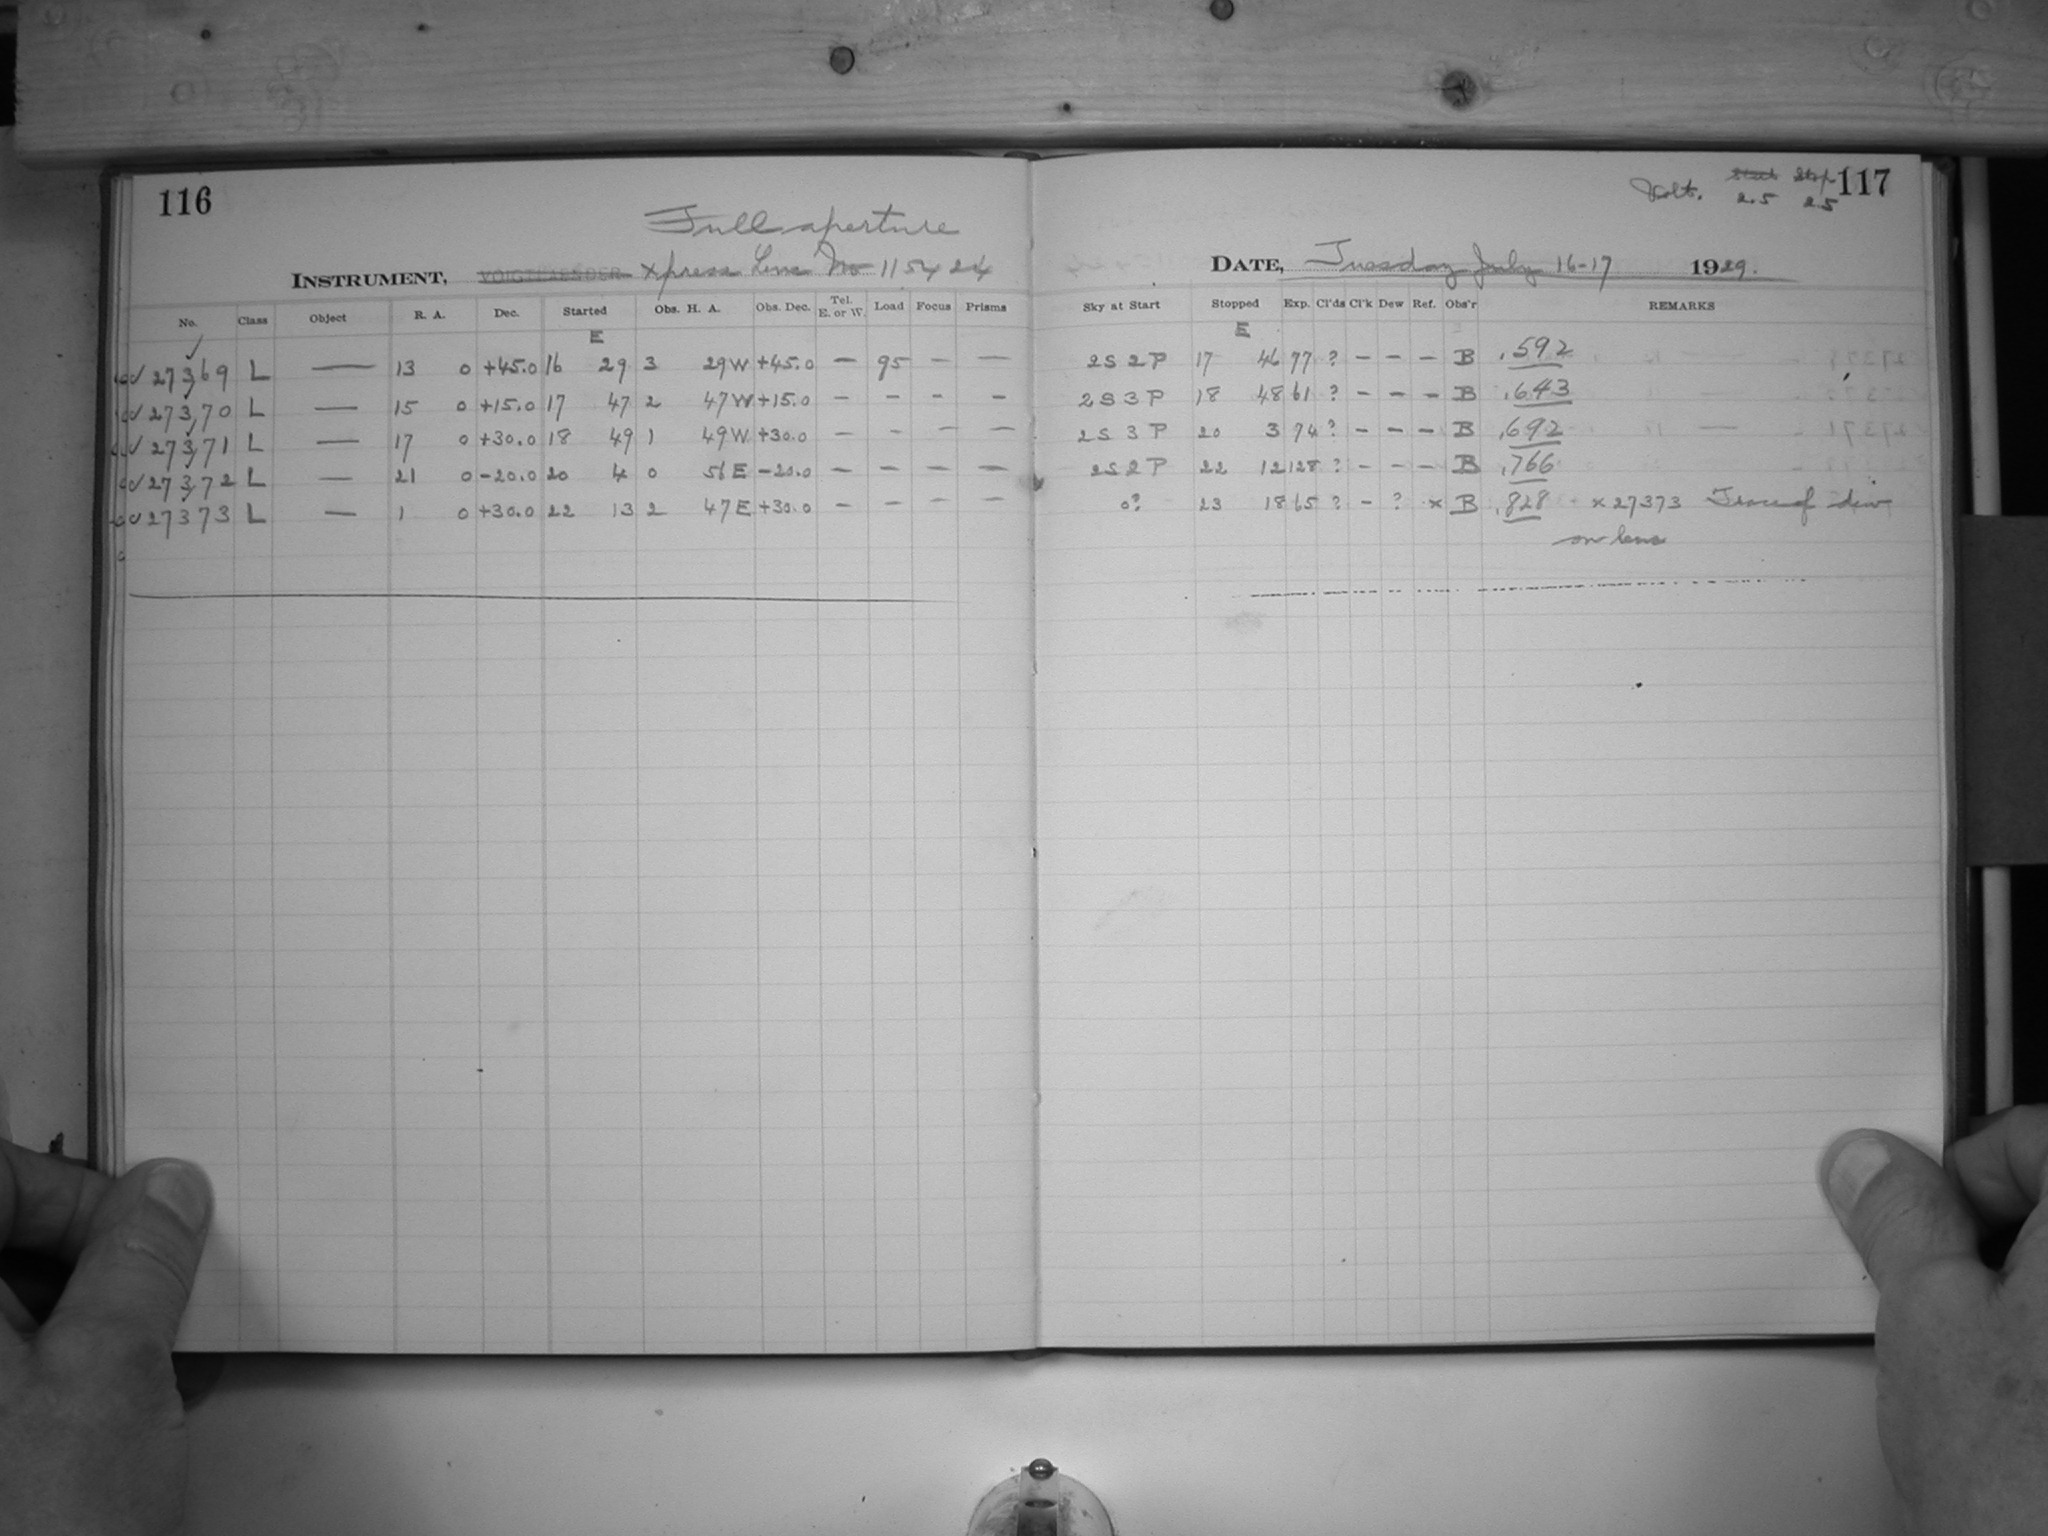 116
Full aperture
INSTRUMENT, VOIGTLAENDER Xpress Lens No 115424
No. Class Object R. A. Dec. Started Obs. H. A. Obs. Dec. Tel. E. or W. Load Focus Prisms
E
27369 L — 13 0 +45.0 16 29 3 29W +45.0 — 95 — —
27370 L — 15 0 +15.0 17 47 2 47W +15.0 — — — —
27371 L — 17 0 +30.0 18 49 1 49W +30.0 — — — —
27372 L — 21 0 -20.0 20 4 0 56E -20.0 — — — —
27373 L — 1 0 +30.0 22 13 2 47E +30.0 — — — —
117
Start Stop
Volts. 2.5 25
DATE, Tuesday July 16-17 1929.
Sky at Start Stopped Exp. Cl'ds Cl'k Dew Ref. Obs'r REMARKS
E
2S 2P 17 46 77 ? — — — B .592
2S 3P 18 48 61 ? — — — B .643
2S 3P 20 3 74 ? — — — B .692
2S 2P 22 12 128 ? — — — B .766
0? 23 18 65 ? — ? x B .828 x 27373 Trace of dew
on lens